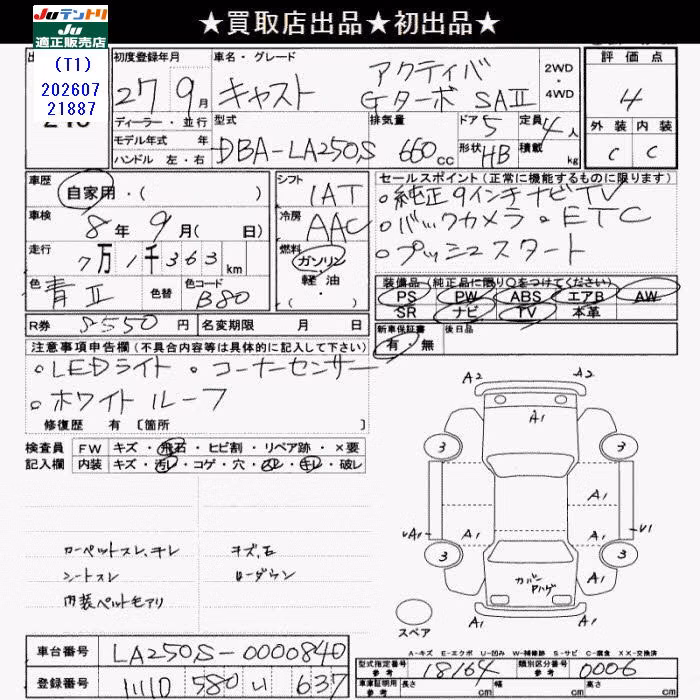 ★買取店出品★初出品★
Juテントリ
Ju
適正販売店
(T1)
202607
21887
初度登録年月
27年9月
車名・グレード
キャスト アクティバ
Gターボ SAⅡ
2WD
4WD
評価点
4
外装 内装
C C
ディーラー・並行
モデル年式 年
ハンドル 左・右
型式
DBA-LA250S
排気量
660cc
ドア 5
形状 HB
定員 4人
積載 kg
車歴
自家用・( )
車検
8年9月( 日)
走行
7万1千363km
色
青Ⅱ
色替
色コード
B80
シフト
1AT
冷房
AAC
燃料
ガソリン
軽・油
・( )
セールスポイント(正常に機能するものに限ります)
。純正9インチナビTV
。バックカメラ 。ETC
。プッシュスタート
装備品(純正品に限り○をつけてください)
PS PW ABS エアB AW
SR ナビ TV 本革
新車保証書
有・無
後日品
R券 5550円
名変期限 月 日
注意事項申告欄(不具合内容等は具体的に記入して下さい)
。LEDライト 。コーナーセンサー
。ホワイトルーフ
修復歴 有 [箇所 ]
検査員
記入欄
FW キズ・飛石・ヒビ割・リペア跡・×要
内装 キズ・汚レ・コゲ・穴・スレ・キレ・破レ
カーペットスレ、キレ
シートスレ
内装ペットモアリ
キズ、石
ローダウン
A2 A2
A1
3 3
A1
A1
A1 A1
A1
3 3
カバー
Aハゲ
A1
A1
スペア
A-キズ E-エクボ U-凹み W-補修跡 S-サビ C-腐食 XX-交換済
車台番号
LA250S-0000840
登録番号
580 い 637
型式指定番号
参考
18164
類別区分番号
参考
0006
車庫証明用
参考
長さ cm
幅 cm
高さ cm